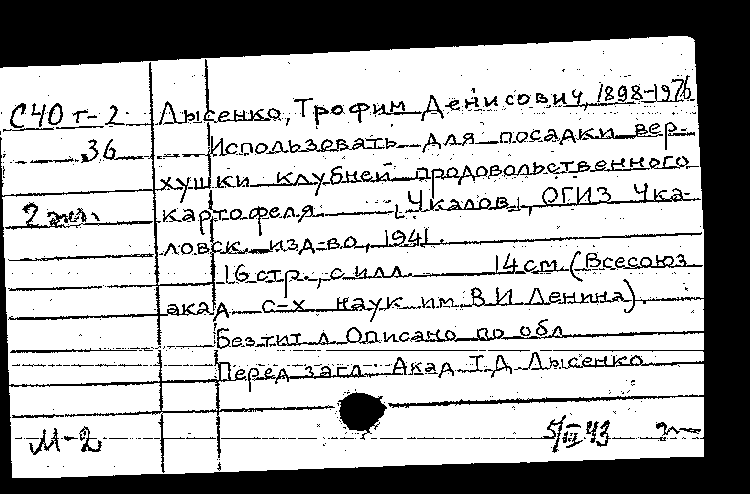 С40 г-2 Лысенко, Трофим Денисович, 1898-1976
36 Использовать для посадки вер-
хушки клубней продовольственного
2 экз. картофеля. [Чкалов], ОГИЗ Чка-
ловск. изд-во, 1941.
16 стр., с илл. 14 см. (Всесоюз.
акад. с-х наук им. В.И. Ленина).
Без тит. л. Описано по обл.
Перед загл.: Акад. Т.Д. Лысенко
М-2 5/III 43